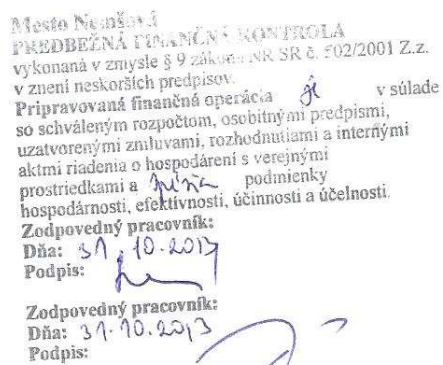 Mesto Nemšová
PREDBEŽNÁ FINANČNÁ KONTROLA
vykonaná v zmysle § 9 zákona NR SR č. 502/2001 Z.z.
v znení neskorších predpisov.
Pripravovaná finančná operácia je v súlade
so schváleným rozpočtom, osobitnými predpismi,
uzatvorenými zmluvami, rozhodnutiami a internými
aktmi riadenia o hospodárení s verejnými
prostriedkami a spĺňa podmienky
hospodárnosti, efektívnosti, účinnosti a účelnosti.
Zodpovedný pracovník:
Dňa: 31.10.2013
Podpis:
Zodpovedný pracovník:
Dňa: 31.10.2013
Podpis: